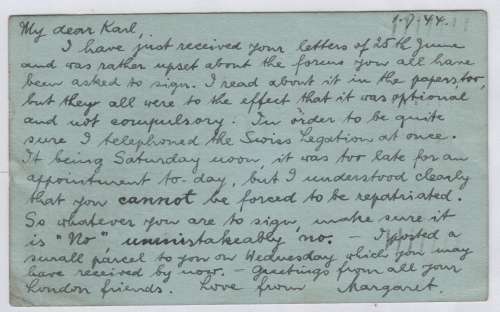 1.7.44.
My dear Karl,
I have just received your letters of 25th June
and was rather upset about the forms you all have
been asked to sign. I read about it in the papers, too,
but they all were to the effect that it was optional
and not compulsory. In order to be quite
sure I telephoned the Swiss Legation at once.
It being Saturday noon, it was too late for an
appointment to-day, but I understood clearly
that you cannot be forced to be repatriated.
So whatever you are to sign, make sure it
is "No" unmistakeably, no. – I posted a
small parcel to you on Wednesday which you may
have received by now. – Greetings from all your
London friends. Love from Margaret.